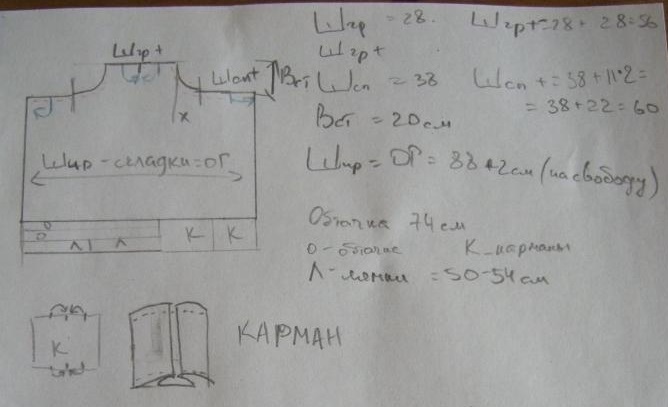 Шгр = 28. Шгр+ = 28 + 28 = 56
Шгр+
Шсп = 38 Шсп + = 38 + 11*2 =
= 38 + 22 = 60
Вст = 20 см
Шир = ОГ = 88 + 2 см (на свободу)
Обтачка 74 см
О - обтачка К - карманы
Л - лямки = 50-54 см
Шгр +
Шсп+
Вст
х
Шир - складки = ОГ
О
О
Л Л К К
К
КАРМАН